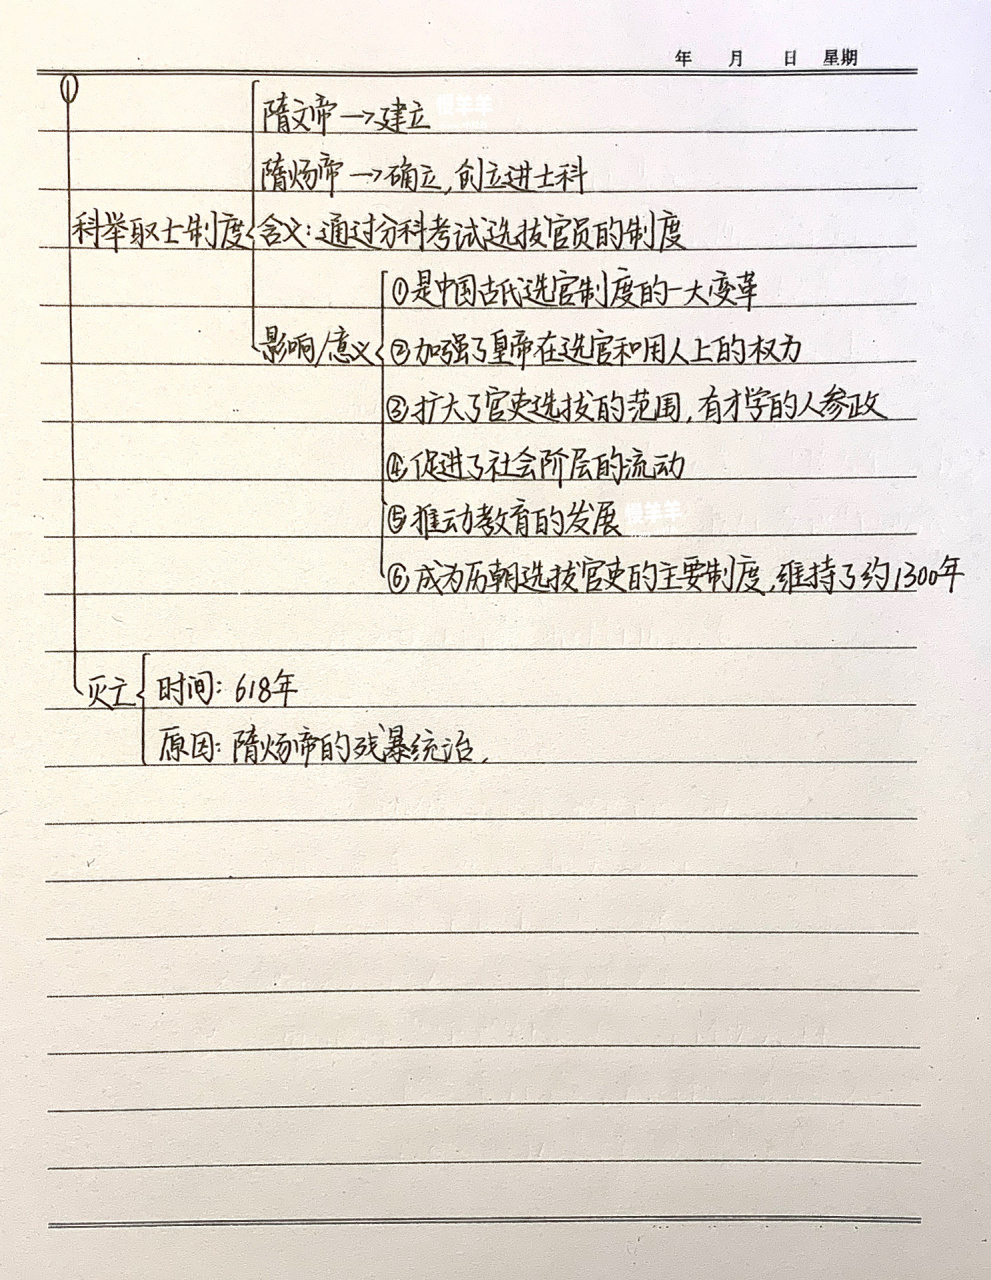 年 月 日 星期
隋文帝→建立
隋炀帝→确立,创立进士科
科举取士制度 含义:通过分科考试选拔官员的制度
①是中国古代选官制度的一大变革
影响/意义 ②加强了皇帝在选官和用人上的权力
③扩大了官吏选拔的范围,有才学的人参政
④促进了社会阶层的流动
⑤推动教育的发展
⑥成为历朝选拔官吏的主要制度,维持了约1300年
灭亡 时间:618年
原因:隋炀帝的残暴统治.